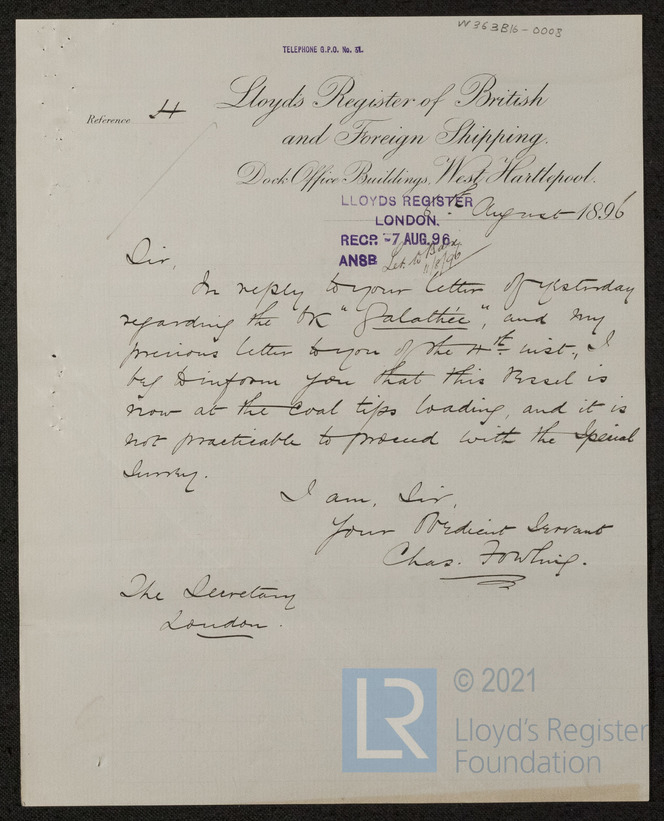 W363B16-0003
TELEPHONE G.P.O. No. 51.
Reference H
Lloyds Register of British
and Foreign Shipping.
Dock Office Buildings, West Hartlepool.
6th August 1896
LLOYDS REGISTER
LONDON.
RECD -7 AUG. 96
ANSD
Sir,
In reply to your letter of yesterday
regarding the Bk "Galathée", and my
previous letter to you of the 4th inst., I
beg to inform you that this vessel is
now at the coal tips loading, and it is
not practicable to proceed with the Special
Survey.
I am, Sir,
Your Obedient Servant
Chas. Fowling.
The Secretary
London.
LR
© 2021
Lloyd's Register
Foundation